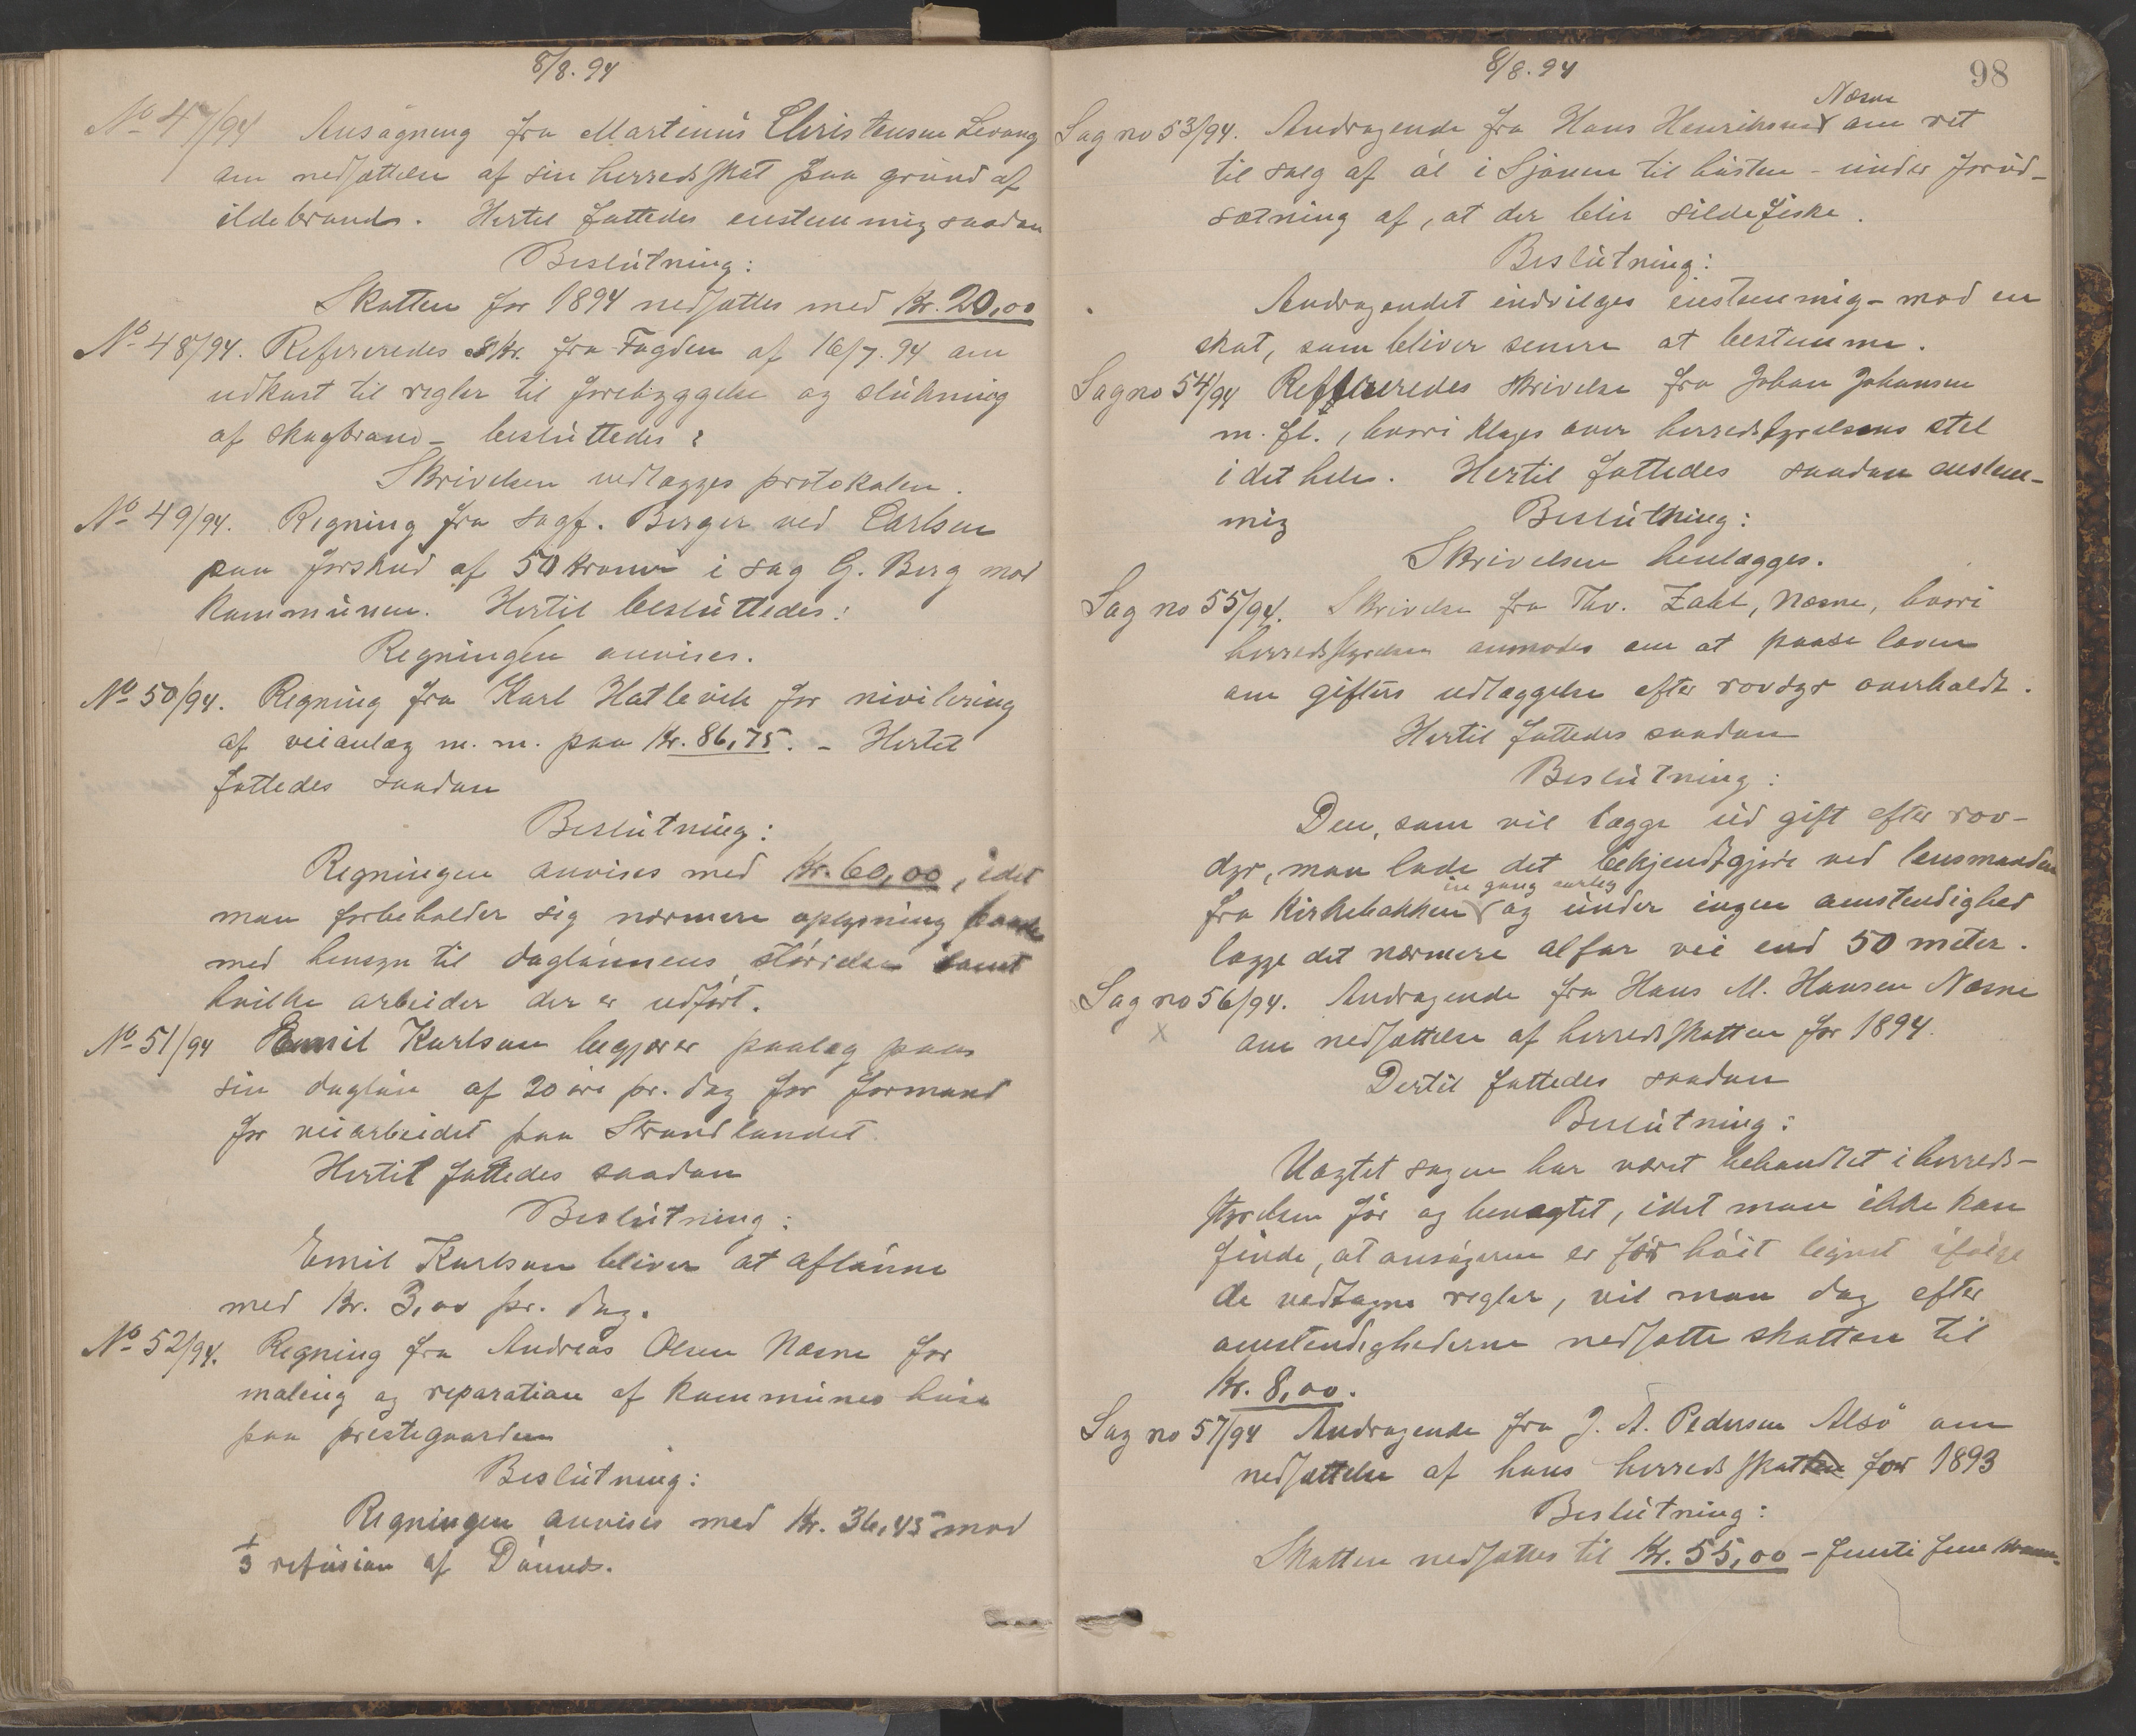 8/8. 94
No 47/94 Ansøgning fra Martinus Christensen Levang
om nedsættelse af sin herredsskat paa grund af
ildebrand. Hertil fattedes enstemmig saadan
Beslutning:
Skatten for 1894 nedsættes med Kr. 20,00
No 48/94. Refereredes skr. fra Fogden af 16/7. 94 om
udkast til regler til forebyggelse og slukning
af skogbrand - besluttedes:
Skrivelsen vedlægges protokolen.
No 49/94. Regning fra sagf. Berger ved Carlsen
paa forskud af 50 kroner i sag G. Berg mod
kommunen. Hertil besluttedes:
Regningen anvises.
No 50/94. Regning fra Karl Hatlevik for nivilering
af veianlæg m. m. paa Kr. 86,75. - Hertil
fattedes saadan
Beslutning:
Regningen anvises med Kr. 60,00, idet
man forbeholder sig nærmere oplysning baade
med hensyn til daglønnens størrelse samt
hvilke arbeider der er udført.
No 51/94 Emil Karlsen begjærer paalæg paa
sin dagløn af 20 øre pr. dag for formand
for veiarbeidet paa Strandlandet
Hertil fattedes saadan
Beslutning:
Emil Karlsen bliver at aflønne
med Kr. 3,00 pr. dag.
No 52/94. Regning fra Andreas Olsen Næsne for
maling og reparation af kommunes huse
paa prestegaarden
Beslutning:
Regningen anvises med Kr. 36,45 mod
1/3 refusion af Dønnes.
8/8. 94
98
Næsne
Sag no 53/94. Andragende fra Hans Henriksen om ret
til salg af øl i Sjonen til høsten - under forud-
sætning af, at der blir sildefiske.
Beslutning:
Andragendet indvilges enstemmig - mod en
skat, som bliver senere at bestemme.
Sag no 54/94 Refereredes skrivelse fra Johan Johansen
m. fl., hvori klages over herredsstyrelsens stel
i det hele. Hertil fattedes saadan enstem-
mig Beslutning:
Skrivelsen henlægges.
Sag no 55/94. Skrivelse fra Thv. Zahl, Næsne, hvori
herredsstyrelsen anmodes om at paase loven
om giftens udlæggelse efter rovdyr overholdt.
Hertil fattedes saadan
Beslutning:
Den, som vil lægge ud gift efter rov-
dyr, maa lade det bekjendtgjøre ved lensmanden
en gang aarlig
fra kirkebakken og under ingen omstendighed
lægge det nærmere alfar vei end 50 meter.
Sag no 56/94. Andragende fra Hans M. Hansen Næsne
x om nedsættelse af herredsskatten for 1894.
Dertil fattedes saadan
Beslutning:
Uagtet sagen har været behandlet i herreds-
styrelsen før og benegtet, idet man ikke kan
finde, at ansøgeren er for høit lignet ifølge
de vedtagne regler, vil man dog efter
omstendighederne nedsætte skatten til
Kr. 8,00.
Sag no 57/94 Andragende fra J. A. Pedersen Alsø om
nedsættelse af hans herredsskat for 1893
Beslutning:
Skatten nedsættes til Kr. 55,00 - femti fem kroner.